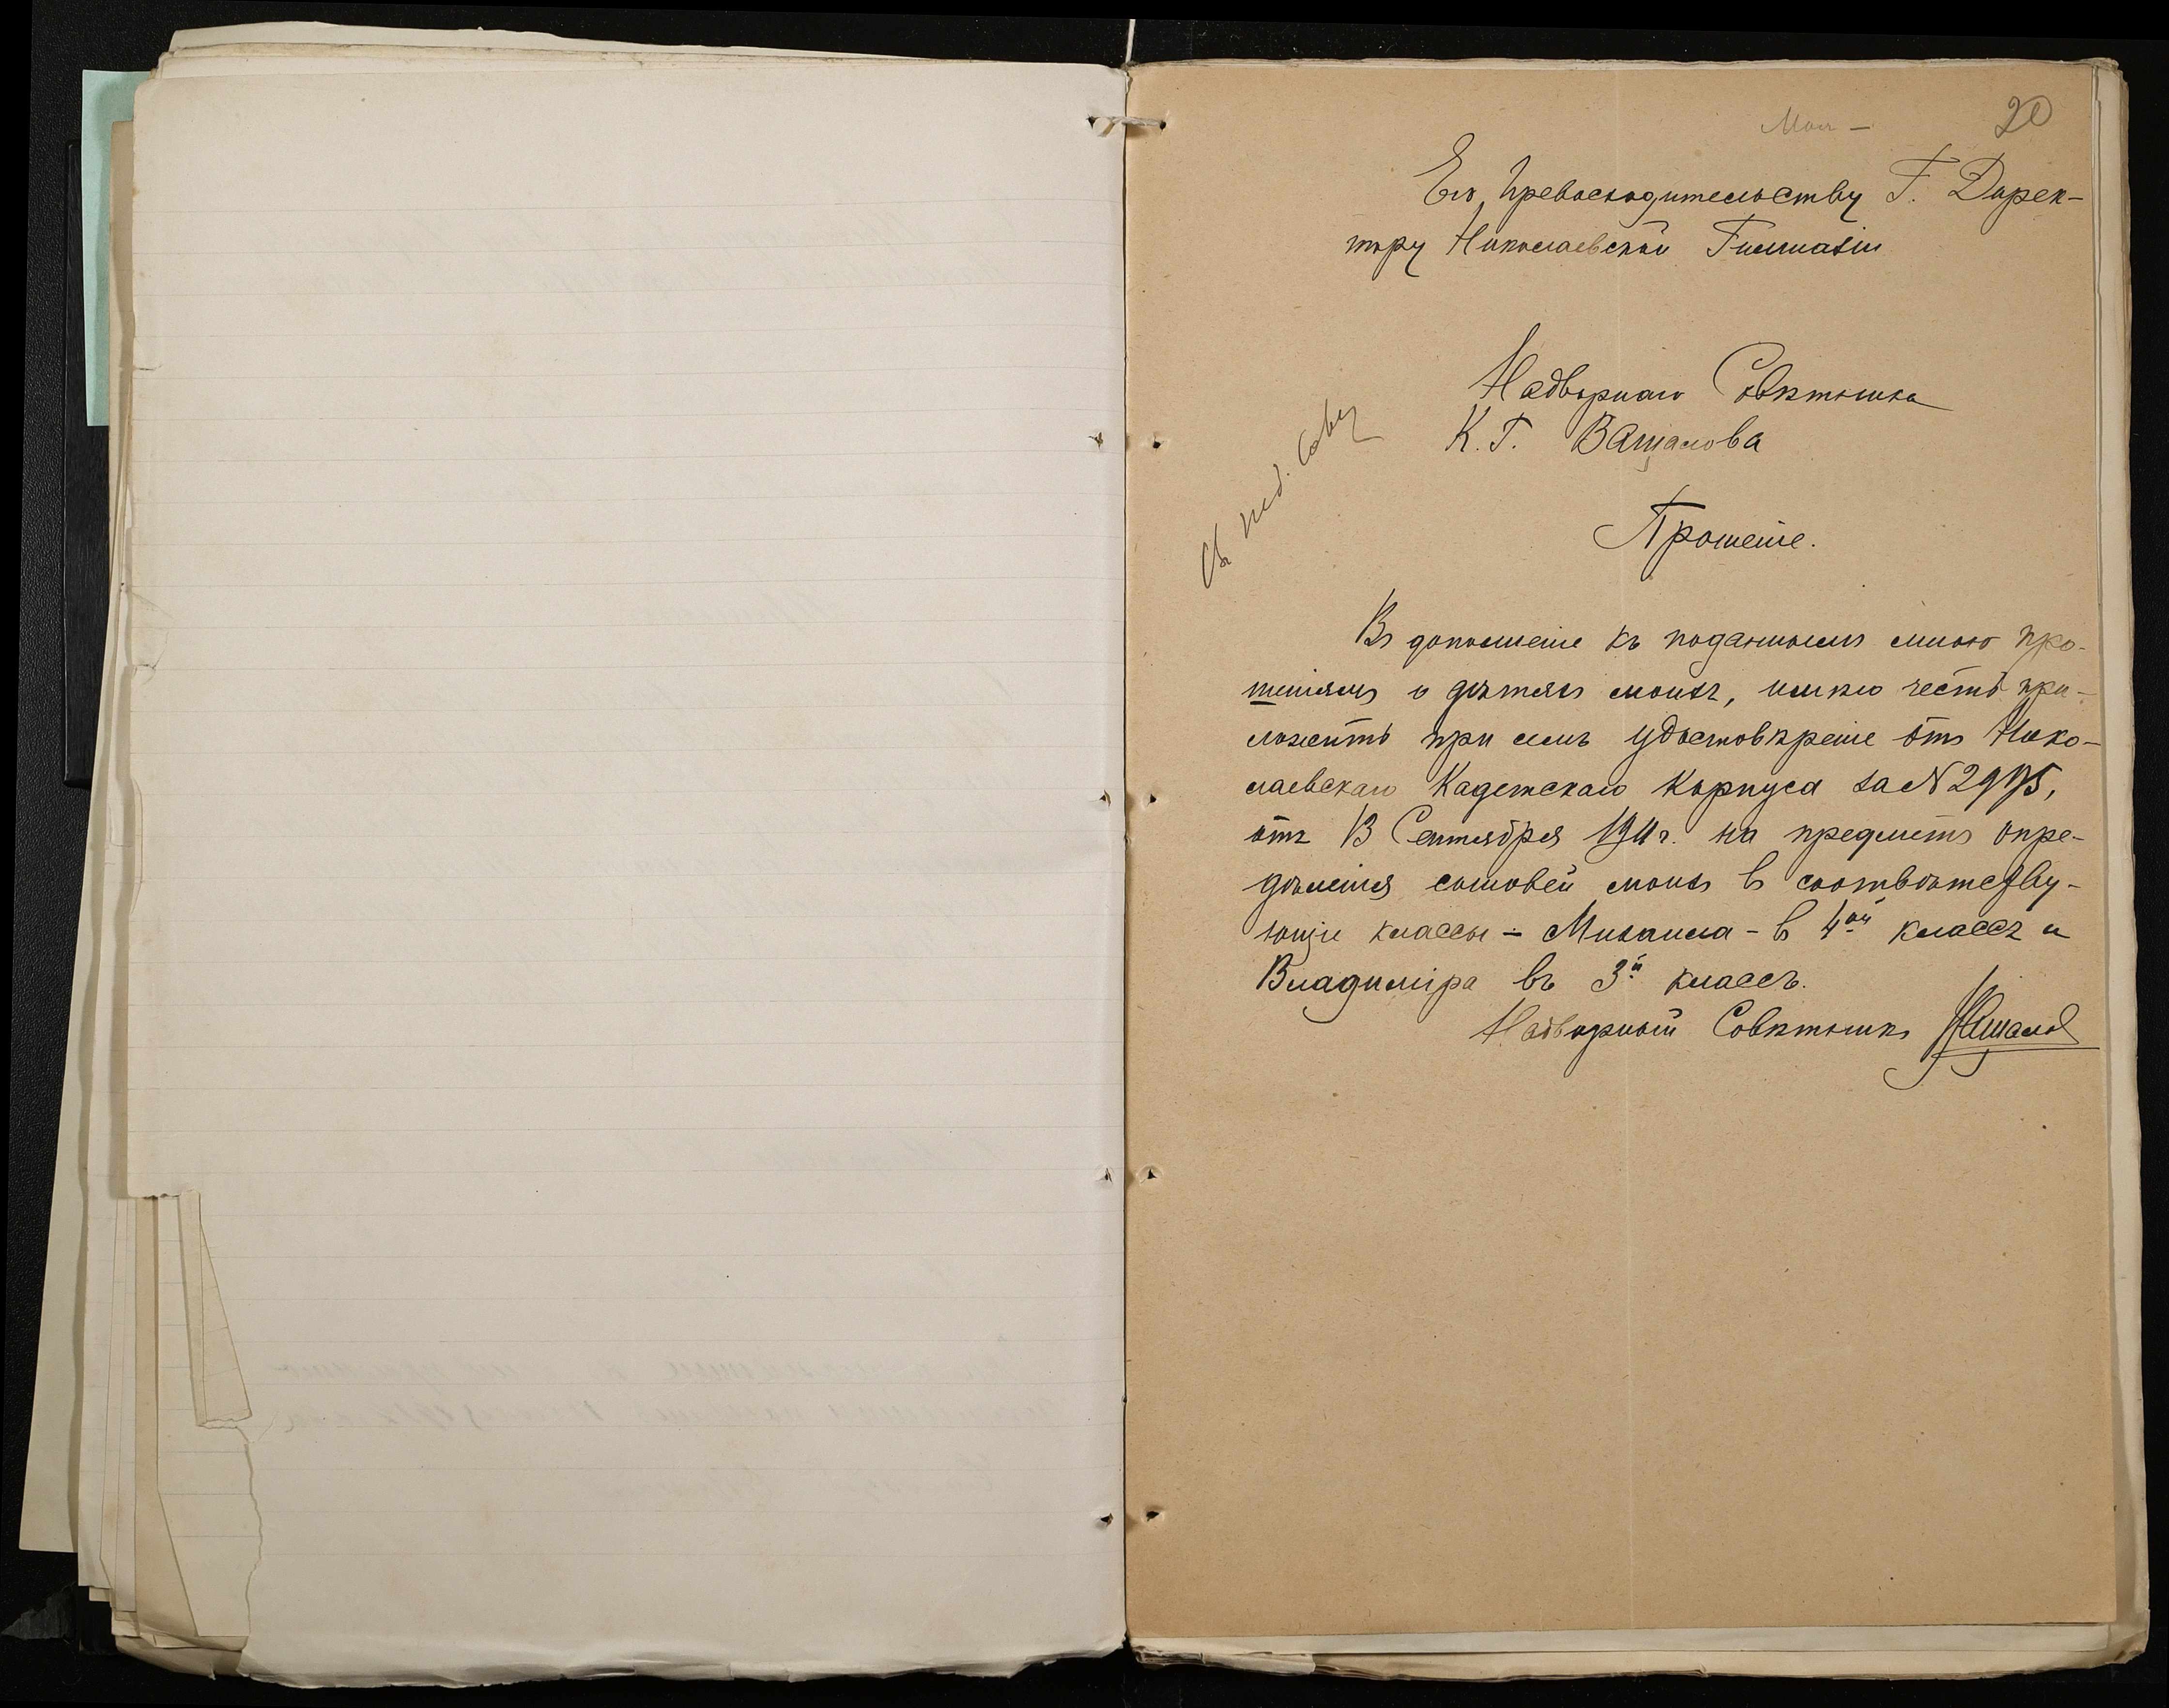 20
Его Превосходительству Г. Дирек-
тору Николаевской Гимназіи
Надворнаго Совѣтника
К. Г. Ващалова
Прошеніе.
Въ дополненіе къ поданнымъ мною про-
шеніямъ о дѣтяхъ моихъ, имѣю честь при-
ложить при семъ удостовѣреніе отъ Нико-
лаевскаго Кадетскаго Корпуса за №2975,
отъ 13 Сентября 1911 г. на предметъ опре-
дѣленія сыновей моихъ въ соотвѣтству-
ющіе классы - Михаила - въ 4ый классъ и
Владиміра въ 3й классъ.
Надворный Совѣтникъ